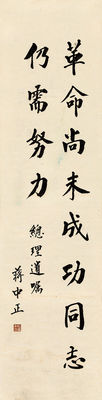 革命尚未成功同志
仍需努力
總理遺囑
蔣中正